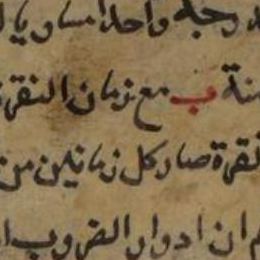 واحدا مساويا
ب مع زمان النقر
نقرة صار كل زمانين من
ان ادوار الضروب